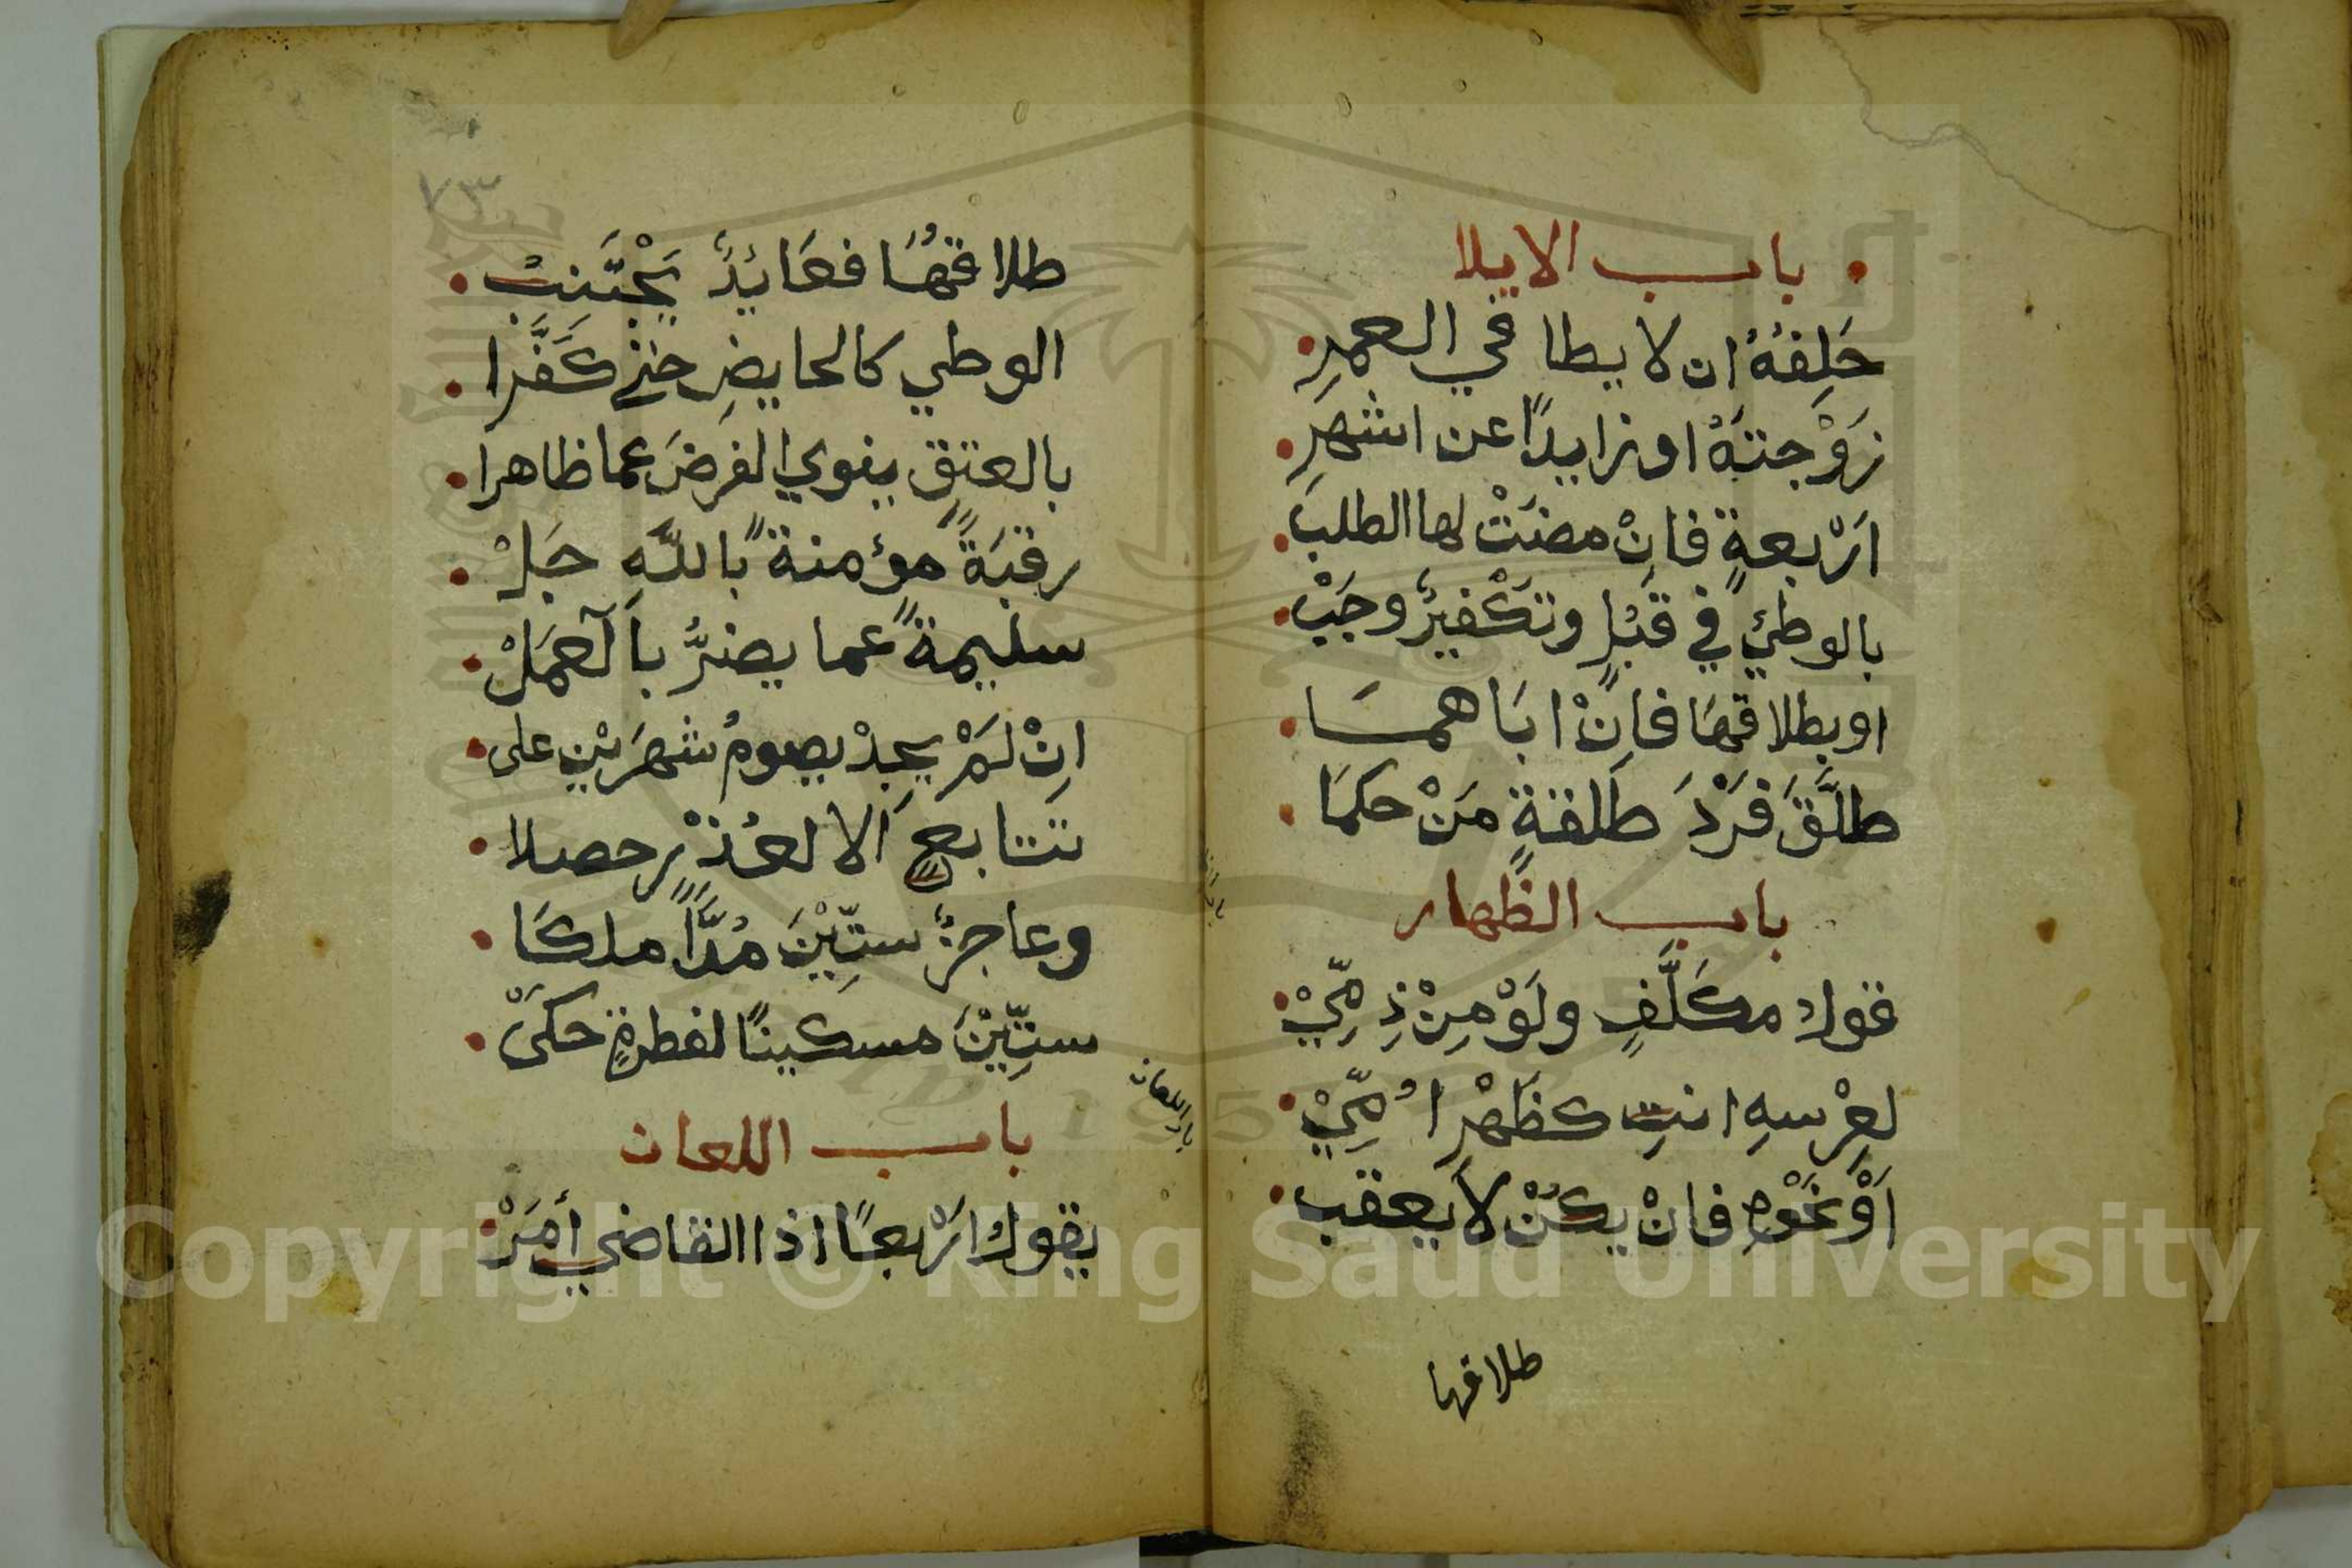 باب الايلا
حَلِفُهُ ان لا يطا في العمرِ
زَوْجتَهُ او زايدًا عن اشهرِ
اَرْبعةٍ فانْ مضتْ لها الطلبْ
بالوطيِ في قُبْلٍ وتكْفيرٌ وجَبْ
او بطلاقهَا فاِنْ ابَاهمَا
طلَّقَ فرْدَ طَلقةٍ مَنْ حكمَا
باب الظِّهار
قول مكلَّفٍ ولَوْ مِنْ ذِمِّيْ
لعِرْسهِ انتِ كظَهْرِ اُمِّيْ
اَوْ نَحْوِهِ فانْ يكُنْ لا يعقب
طلاقها
٧٣
طلاقهَا فعَايِدٌ يَجْتَنِبُ
الوطي كالحايضِ حتى كَفَّرا
بالعتقِ ينوي الفرضَ عما ظاهرا
رقبَةً مؤمنةً باللّهِ جَلْ
سليمةً عما يضرُّ بالعَمَلْ
اِنْ لَمْ يجدْ يصومُ شهرَيْنِ على
تتابعٍ اَلا لعُذْرٍ حصلا
وعاجزٌ ستِّيْنَ مُدًّا ملكَا
ستِّيْنَ مسكينًا لفطرةٍ حكَىْ
باب اللعان
باب اللعان
يقول ارْبعًا اذا القاضي أمَرْ
Copyright © King Saud University
1957